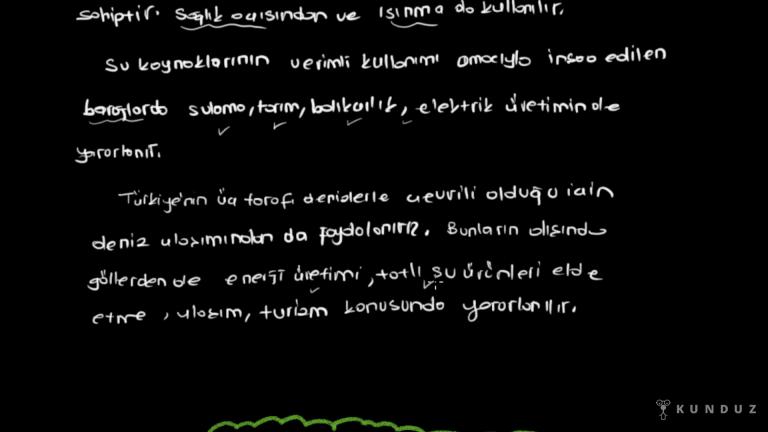 sahiptir. Sağlık açısından ve ısınma da kullanılır.
Su kaynaklarının verimli kullanımı amacıyla inşaa edilen
barajlarda sulama, tarım, balıkçılık, elektrik üretiminde
yararlanılır.
Türkiye'nin üç tarafı denizlerle çevrili olduğu için
deniz ulaşımından da faydalanırız. Bunların dışında
göllerden de enerji üretimi, tatlı su ürünleri elde
etme, ulaşım, turizm konusunda yararlanılır.
KUNDUZ